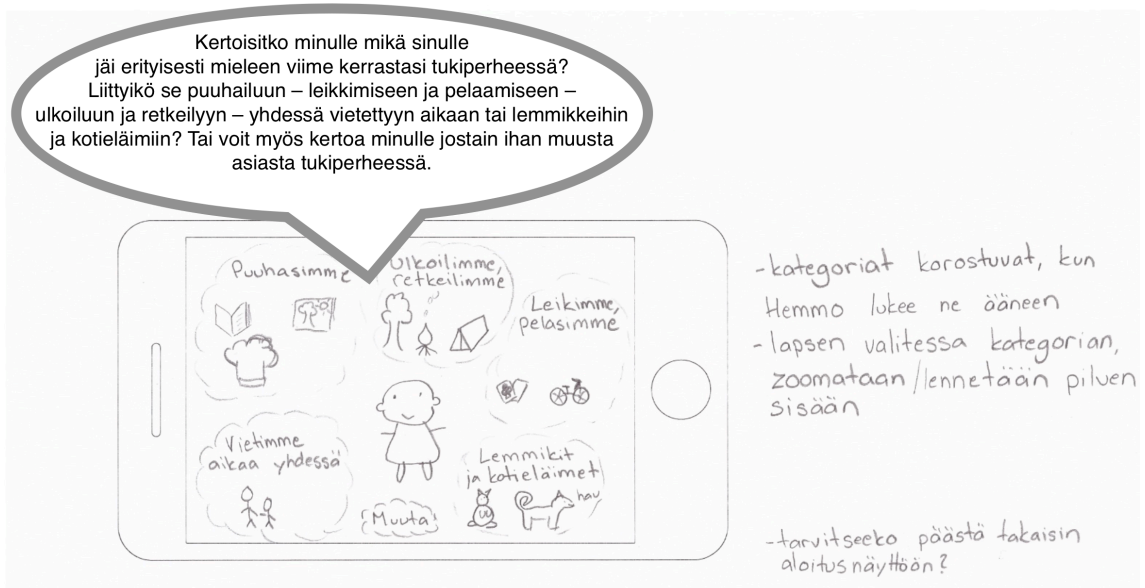 Kertoisitko minulle mikä sinulle
jäi erityisesti mieleen viime kerrastasi tukiperheessä?
Liittyikö se puuhailuun – leikkimiseen ja pelaamiseen –
ulkoiluun ja retkeilyyn – yhdessä vietettyyn aikaan tai lemmikkeihin
ja kotieläimiin? Tai voit myös kertoa minulle jostain ihan muusta
asiasta tukiperheessä.
Puuhasimme
Ulkoilimme,
retkeilimme
Leikimme,
pelasimme
Vietimme
aikaa yhdessä
Muuta
Lemmikit
ja kotieläimet
hau
-kategoriat korostuvat, kun
Hemmo lukee ne ääneen
-lapsen valitessa kategorian,
zoomataan/lennetään pilven
sisään
-tarvitseeko päästä takaisin
aloitusnäyttöön?